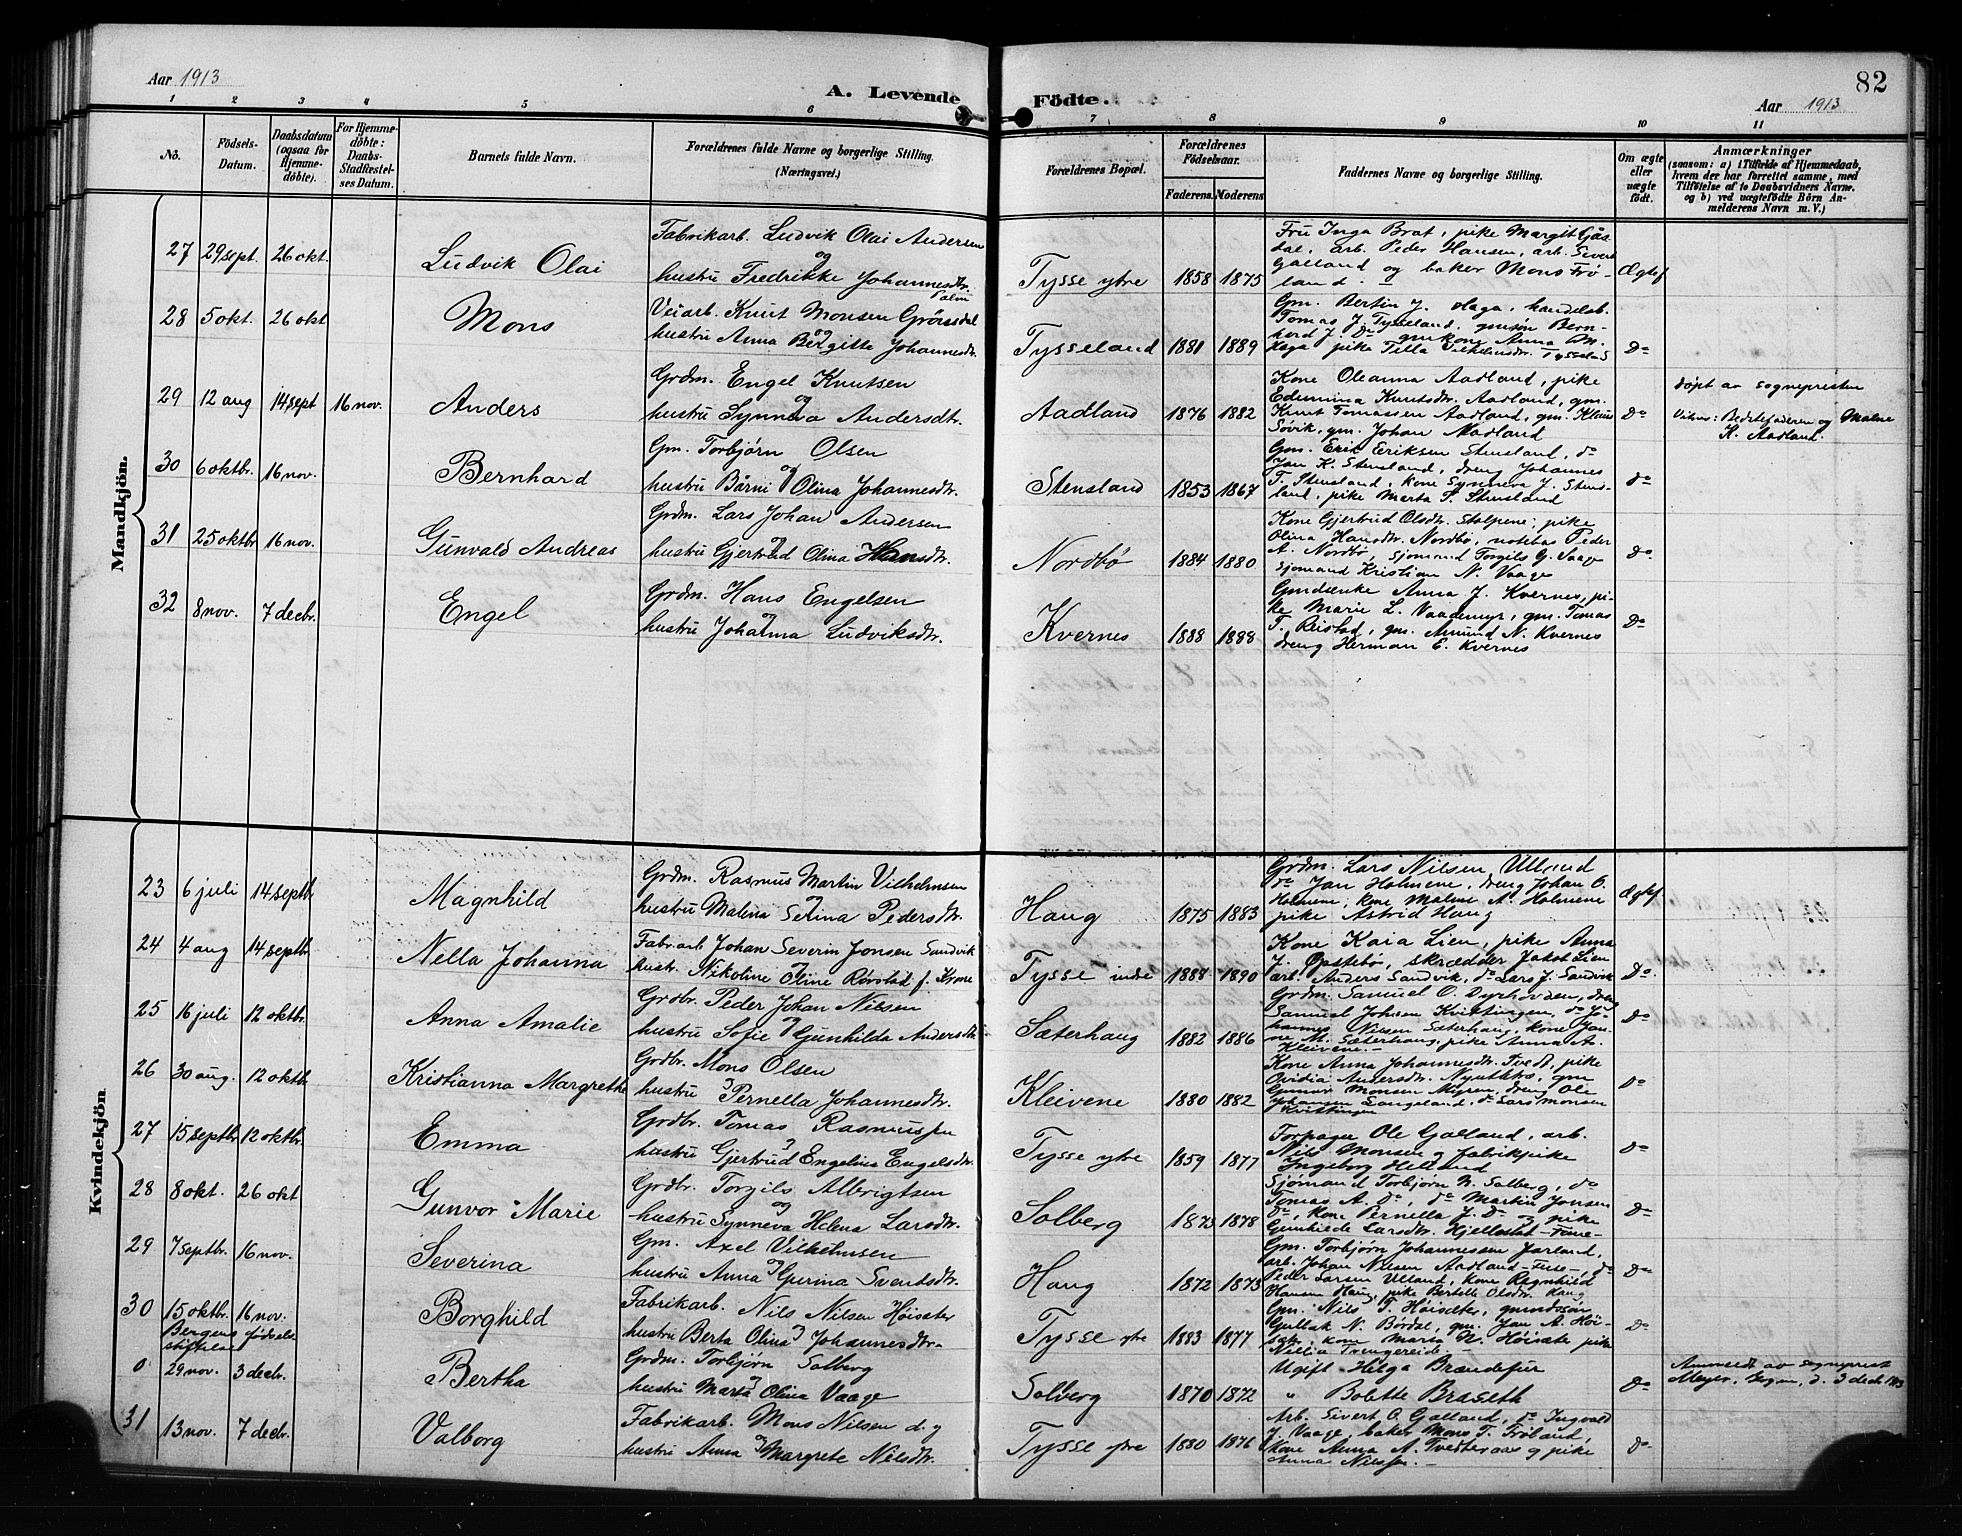 Aar 1913
A. Levende Födte.
82
Aar 1913
1 2 3 4 5 6 7 8 9 10 11
No.
Födsels-Datum.
Daabsdatum (ogsaa for Hjemme-döbte).
For Hjemme-döbte: Daabs-Stadfæstel-ses Datum.
Barnets fulde Navn.
Forældrenes fulde Navne og borgerlige Stilling. (Næringsvei.)
Forældrenes Bopæl.
Forældrenes Födselsaar.
Faderens. Moderens
Faddernes Navne og borgerlige Stilling.
Om ægte eller uægte födt.
Anmærkninger
(saasom: a) i Tilfælde af Hjemmedaab, hvem der har forrettet samme, med Tilföielse af to Daabsvidners Navne. og b) ved uægtefödte Börn An-melderens Navn m. V.)
Mandkjön.
27 29 sept. 26 okt. Ludvik Olai
Fabrikarb. Ludvik Olai Andersen
og
hustru Fredrikke Johannesdtr.
Palm
Tysse ytre 1858 1875
Fru Inga Brat, pike Margit Gjøs-
dal, arb. Peder Hansen, arb. Sivert
Galland og baker Mons Frø-
land.
Ægtef
28 5 okt. 26 okt Mons
Veiarb. Knut Monsen Grøssdal
og
hustru Anna Bergitte Johannesdtr.
Tysseland 1881 1889
Gm. Bertin J. Haga, handelsb.
Tomas J. Tysseland, gmsøn Bern-
hard J. do gmkone Anna M.
Haga pike Tilla Vilhelmsdtr. Tysseland
Do
29 12 aug 14 sept 16 nov. Anders
Grdm. Engel Knutsen
og
hustru Synneva Andersdtr.
Aadland 1876 1882
Kone Oleanna Aadland, pike
Edumina Knutsdtr. Aadland, gm.
Knut Tomassen Aadland, gm. Klaus
Søvik, gm. Johan Aadland
Do
døpt av sognepresten
Vitner: Bedstefaderen og Malene
K. Aadland.
30 6 oktbr. 16 nov. Bernhard
Gm. Torbjørn Olsen
og
hustru Bårni Olina Johannesdtr.
Stensland 1853 1867
Gm. Eric Eriksen Stensland, do
Jan K. Stensland, dreng Johannes
T. Stensland, kone Synneva J. Stens-
land, pike Marta T. Stensland
do
31 25 oktbr 16 nov. Gunvald Andreas
Grdm. Lars Johan Andersen
og
hustru Gjertrud Olina Hansdtr.
Nordbø 1884 1880
Kone Gjertrud Olsdtr. Stolpene, pike
Olina Hansdtr. Nordbø, notebas Peder
A. Nordbø, sjømand Torgils G. Vaage
sjømand Kristian N. Vaage
Do
32 8 nov. 7 decbr. Engel
Grdm. Hans Engelsen
og
hustru Johanna Ludviksdtr.
Kvernes 1888 1888
Gmdsenke Anna J. Kvernes, pi-
ke Marie L. Vaademyr, gm. Tomas
T. Reistad, gm. Amund N. Kvernes
dreng Herman E. Kvernes
Do
Kvindekjön
23 6 juli 14 septbr Magnhild
Grdm. Rasmus Martin Vilhelmsen
og
hustru Malina Serina Pedersdtr.
Haug 1875 1883
Grdm. Lars Nilsen Ulland
do Jan Holmene, dreng Johan O.
Holmene, kone Malene A. Holmene
pike Astrid Haug
Ægtef
24 4 aug 14 septbr. Nella Johanna
Fabr.arb Johan Severin Jonsen Sandvik
og
hustr. Nikoline Oline Rørstad f. Krone
Tysse indre 1888 1890
Kone Kaia Lien, pike Anna
J. Gjøstebø, skrædder Jakob Lien
arb. Anders Sandvik, do Lars J. Sandvik
Do
25 16 juli 12 oktbr. Anna Amalie
Grdbr. Peder Johan Nilsen
og
hustru Sofie Gunhilda Andersdtr.
Sæterhaug 1882 1886
Grdm. Samuel O. Dyrhovden, dreng
Samuel Johsen Kvittingen, do Jo-
hannes Nilsen Sæterhaug, kone Jan-
ne M. Sæterhaug, pike Anna A.
Kleivene.
Do
26 30 aug. 12 oktbr Kristianna Margrethe
Grdbr. Mons Olsen
og
hustru Pernella Johannesdtr.
Kleivene 1880 1882
Kone Anna Johannesdtr. Tvedt, pike
Ovidia Andersdtr. Nyuthtræ, gm
Gunnar Monsen Myren, dreng Ole
Johannsen Langeland, do Lars Monsen
Kvittingen
Do
27 15 septbr 12 oktbr Emma
Grdbr. Tomas Rasmussen
og
hustru Gjertrud Engelina Engelsdtr.
Tysse ytre 1859 1877
Torpager Ole Galland, arb.
Nils Monsen og fabrikpike
Ingeborg Helland
Do
28 8 okt. 26 okt Gunvor Marie
Grdbr. Torgils Albrigtsen
og
hustru Synneva Helena Larsdtr.
Solberg 1873 1878
Sjømand Torbjørn N. Solberg, do
Tomas A. do, do Martin Jonsen
do, kone Pernella J. do og pike
Gunhilde Larsdtr. Hjellestat-Fane-
Do
29 7 septbr. 16 nov. Severina
Gm. Axel Vilhelmsen
og
hustru Anna Gurina Svendsdtr.
Haug 1872 1873
Gm. Torbjørn Johannessen Jarland,
arb. Johan Nilsen Aadland-Fuse-, do
Peder Larsen Ulland, kone Ragnhild
Hansen Haug, pike Bertelle Olsdtr. Haug
Do
30 15 oktbr. 16 nov. Borghild
Bergens fødsels
stiftelse
Fabrikarb. Nils Nilsen Høisæter
og
hustru Berta Olina Johannesdtr.
Tysse ytre 1883 1877
Gm. Nils T. Høisæter, gmndssøn
Gullak N. Børdal, gm. Jan A. Høi-
sæt, kone Maria N. Høisæte pike
Nillia Trengereide.
Do
0 29 nov. 3 decbr. Bertha
Grdm. Torbjørn Solberg
og
hustru Marta Olina Vaage
Solberg 1870 1872
Ugift Helga Brændefur
" Bolette Braseth
Do
Anmeldt av sogneprest
Meyer, Bergen, d. 3 decb 1913
31 13 nov. 7 decbr. Valborg
Fabrikarb. Mons Nilsen d. y
og
hustru Anna Margrete Nilsdtr.
Tysse ytre 1880 1876
Arb. Sivert O. Galland, do Ingvald
J. Vaage, baker Mons T. Frøland,
kone Anna A. Tvedteraas og pike
Anna Nilssen.
Do